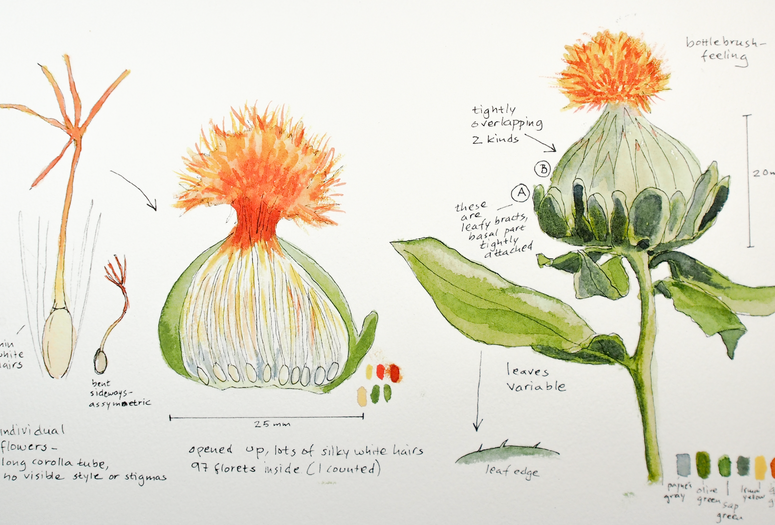 bottlebrush-
feeling
tightly
overlapping
2 kinds
B
A
these
are
leafy bracts,
basal part
tightly
attached
20m
hairs
bent
sideways-
assymetric
leaves
variable
leaf edge
25 mm
individual
flowers-
long corolla tube,
no visible style or stigmas
opened up, lots of silky white hairs
97 florets inside (I counted)
gray
olive
green
sap
green
yellow